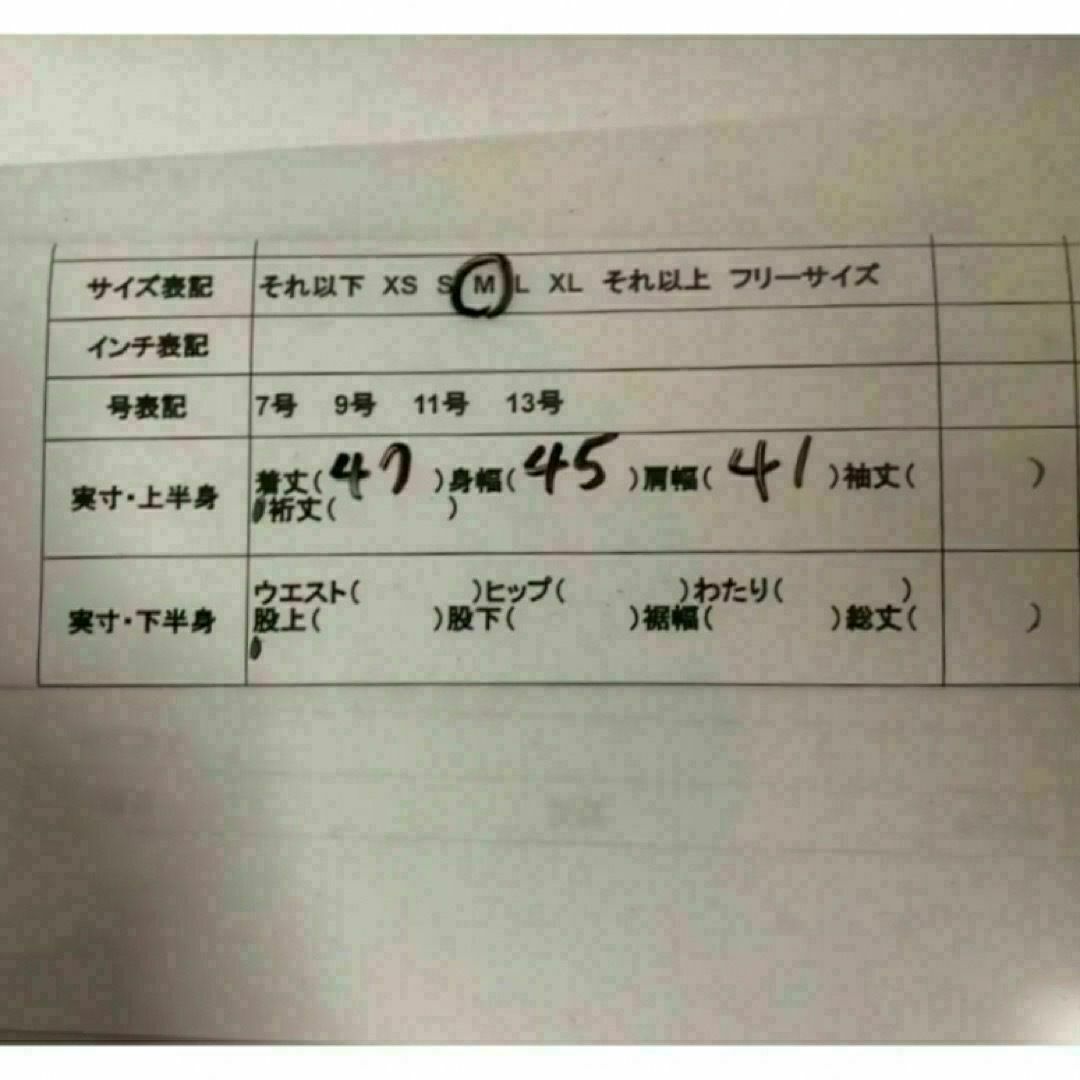 サイズ表記 それ以下 XS S M L XL それ以上 フリーサイズ
インチ表記
号表記 7号 9号 11号 13号
実寸・上半身 着丈(47)身幅(45)肩幅(41)袖丈( )
裄丈( )
実寸・下半身 ウエスト( )ヒップ( )わたり( )
股上( )股下( )裾幅( )総丈( )